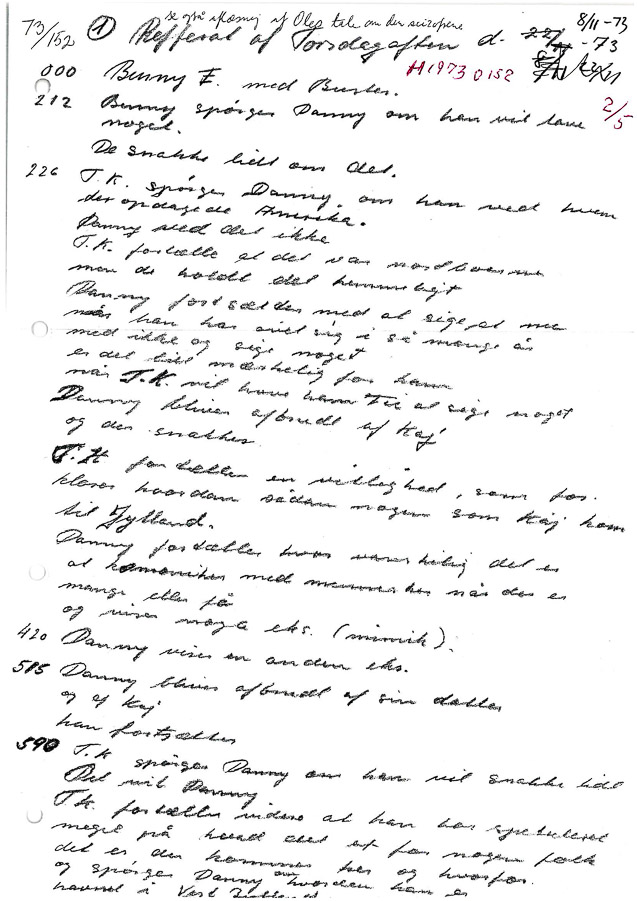 se også af Oles tale om den
73/152 ① Refferat af Torsdagaften d. 22/11 -73 8/11 -73
H 1973 0152
2/5
000 Benny E. med Buster.
212 Benny spørger Danny om han vil lave
noget.
De snakke lidt om det.
226 T.K. spørger Danny, om han ved hvem
der opdagede Amerika.
Danny ved det ikke
T.K. fortælle at det var nordboerne
men de holdt det hemmeligt
Danny fortsætter med at sige at
når han har sig i så mange år
med ikke og sige noget
er det lidt for ham
når T.K. vil have ham til at sige noget
Danny bliver afbrudt af Kaj
og der snakkes
T.K fortæller en vittighed, som for-
klarer hvordan sådan nogen som Kaj kom
til Jylland.
Danny fortæller hvor det er
at med mennesker når der er
mange eller få
og viser nogle eks. (mimik).
420 Danny viser en anden eks.
585 Danny bliver afbrudt af sin datter
og af Kaj
han fortsætter
590 T.K spørger Danny om han vil snakke lidt
Det vil Danny
T.K. fortæller videre at han har spekuleret
meget på hvad det er for nogen folk
det er der kommer her og hvorfor.
og spørger Danny om hvordan han er
havnet i Vest